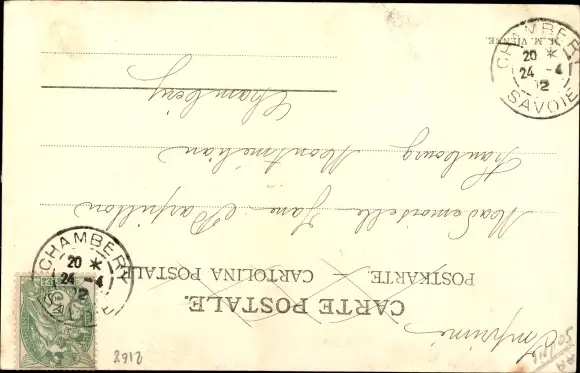 Imprimé
CARTE POSTALE.
POSTKARTE. — CARTOLINA POSTALE
Mademoiselle Jane
Faubourg Montmélian
Chambéry
M. M. VIENNE.
CHAMBERY
20 *
24 -4
02
SAVOIE
CHAMBERY
20 *
24 -4
02
8912